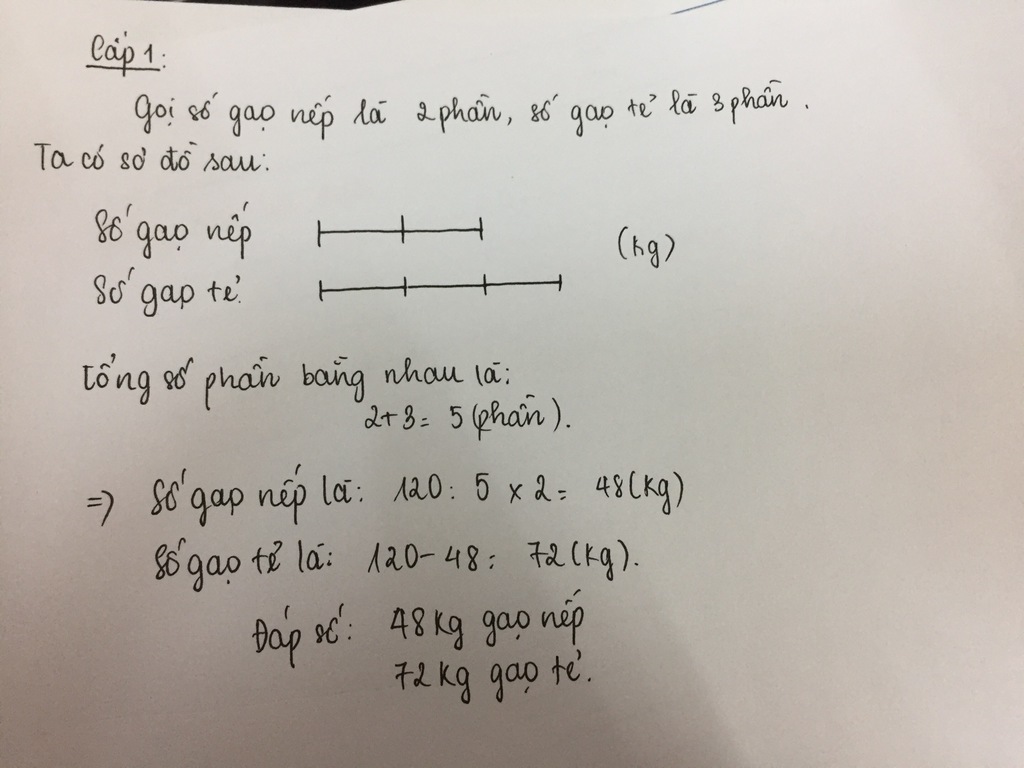 Cấp 1:
Gọi số gạo nếp là 2 phần, số gạo tẻ là 3 phần.
Ta có sơ đồ sau:
Số gạo nếp
(kg)
Số gạo tẻ.
Tổng số phần bằng nhau là:
2+3= 5 (phần).
=> Số gạo nếp là: 120: 5 x 2= 48 (kg)
Số gạo tẻ là: 120-48= 72 (kg).
Đáp số: 48kg gạo nếp
72kg gạo tẻ.